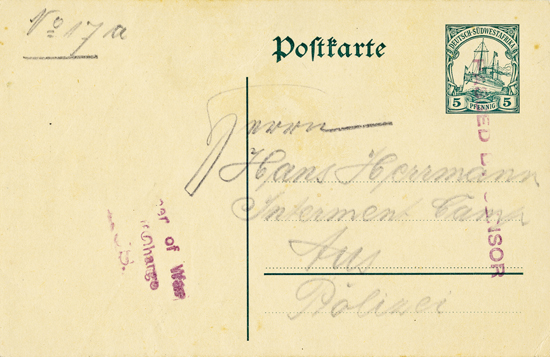 No 17 a
Postkarte
DEUTSCH-SÜDWESTAFRIKA
5 PFENNIG 5
Herrn
Hans Herrmann
Interment Camp
Aus
Polizei
of War
Charge
ED
NSOR